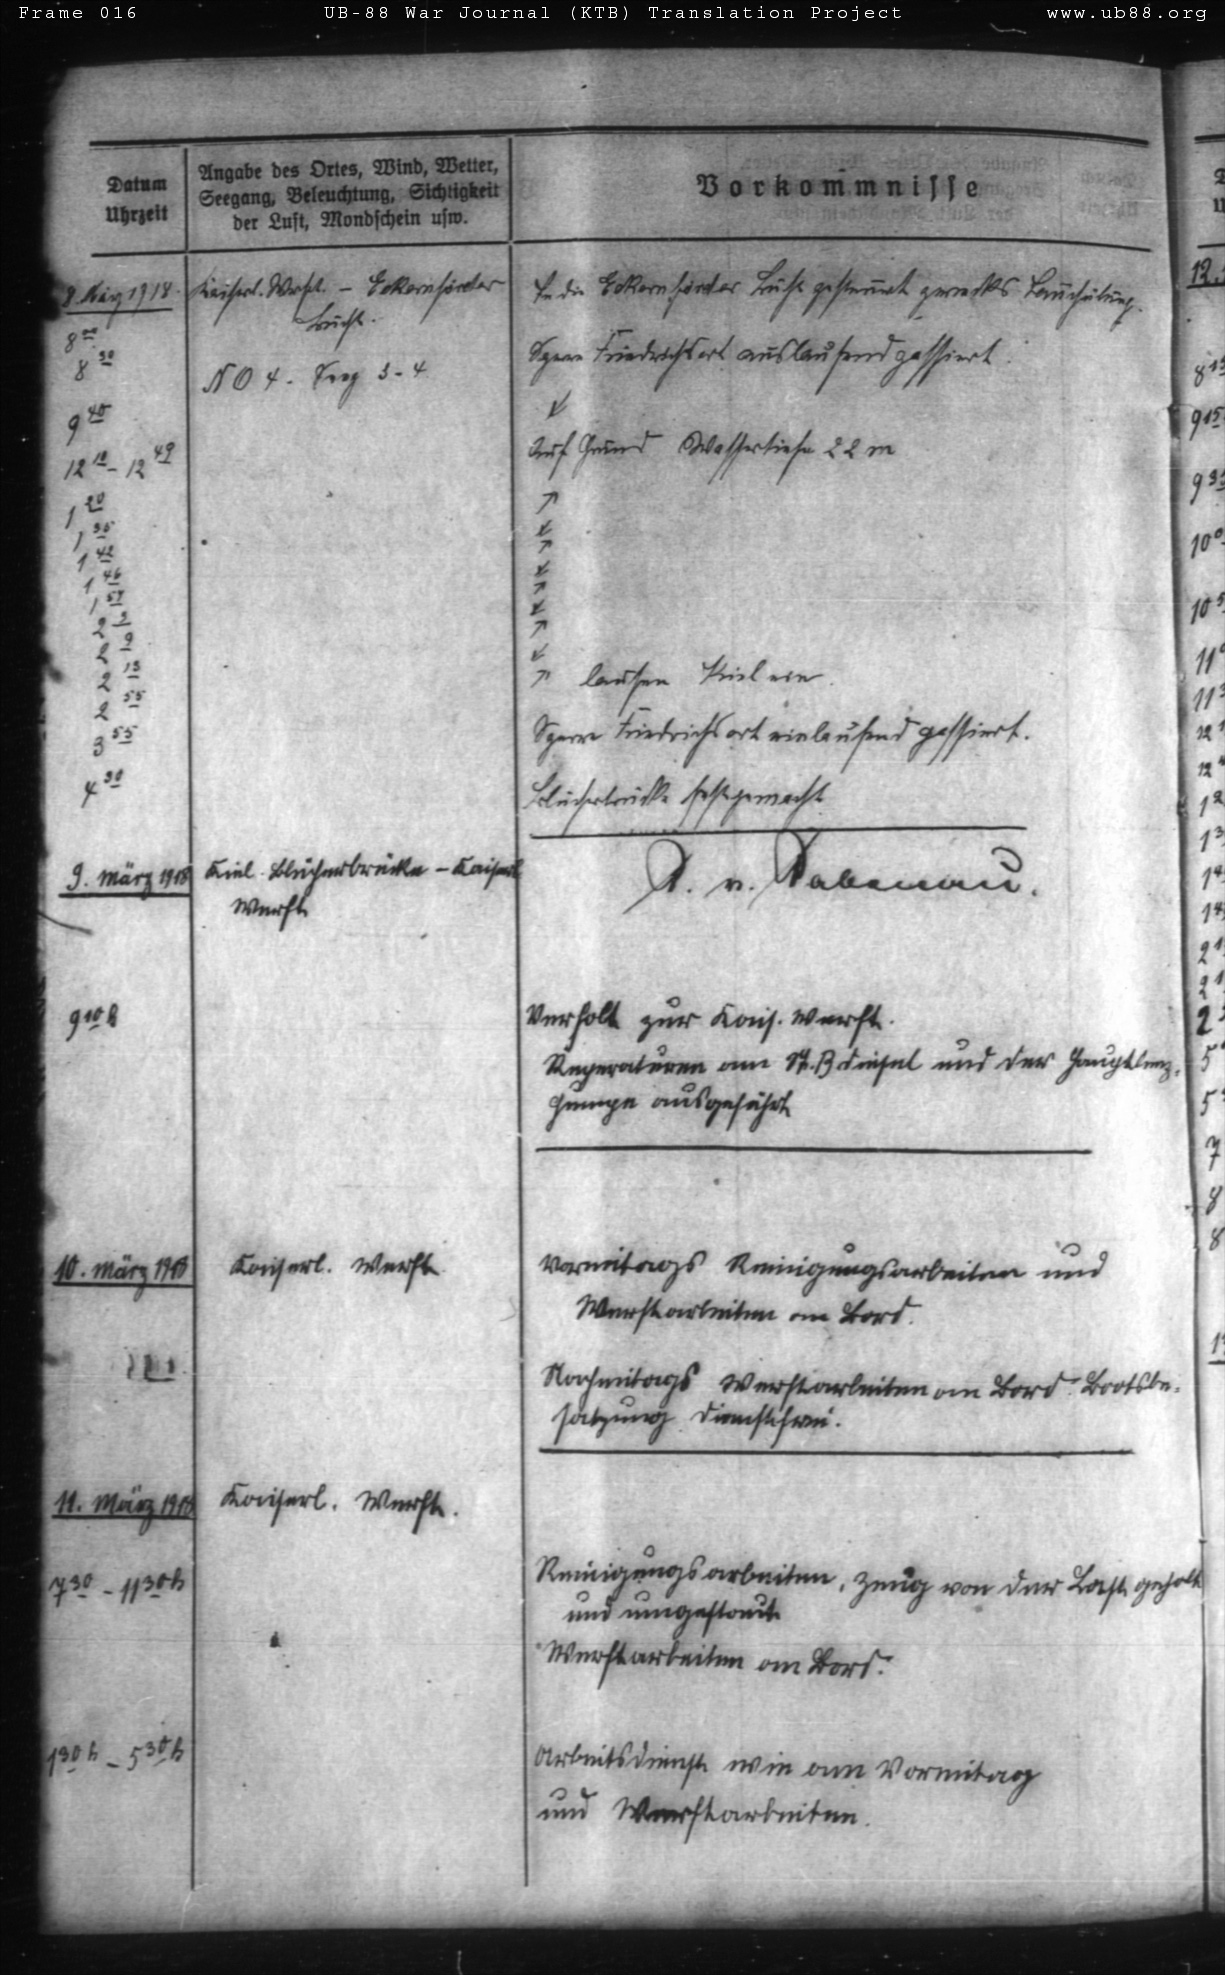 Frame 016 UB-88 War Journal (KTB) Translation Project www.ub88.org
Datum
Uhrzeit
Angabe des Ortes, Wind, Wetter,
Seegang, Beleuchtung, Sichtigkeit
der Luft, Mondschein usw.
Vorkommnisse
8. März 1918. Kaiserl. Werft. – Eckernförder
Bucht.
In die Eckernförder Bucht gedampft zwecks Tauchübung.
8 00
8 30 Sperre Friedrichsort auslaufend passiert.
NO 4. Seeg 3-4
9 40 ↙
12 10 – 12 49 Auf Grund Wassertiefe 22 m
1 20 ↗
1 35 ↙
1 42 ↗
1 46 ↙
1 57 ↗
2 2 ↙
2 9 ↗
2 13 ↙
2 55 ↗ laufen Kiel ein.
3 55 Sperre Friedrichsort einlaufend passiert.
4 30 Blücherbrücke festgemacht
R. v. Rabenau.
9. März 1918 Kiel Blücherbrücke – Kaiserl
Werft
9 10 h Verholt zur Kais. Werft.
Reperaturen am St.B diesel und der Hauptlenz-
pumpe ausgeführt
10. März 1918 Kaiserl. Werft. Vormitags Reinigungsarbeiten und
Werftarbeiten an Bord.
Nachmitags Werftarbeiten an Bord. Bootsbe-
satzung dienstfrei.
11. März 1918 Kaiserl. Werft.
7 30 – 11 30 h Reinigungsarbeiten, Zeug von der Last geholt
und umgestaut
Werftarbeiten an Bord.
1 30 h – 5 30 h Arbeitsdienst wie am Vormitag
und Werftarbeiten.
12.
8 15
9 15